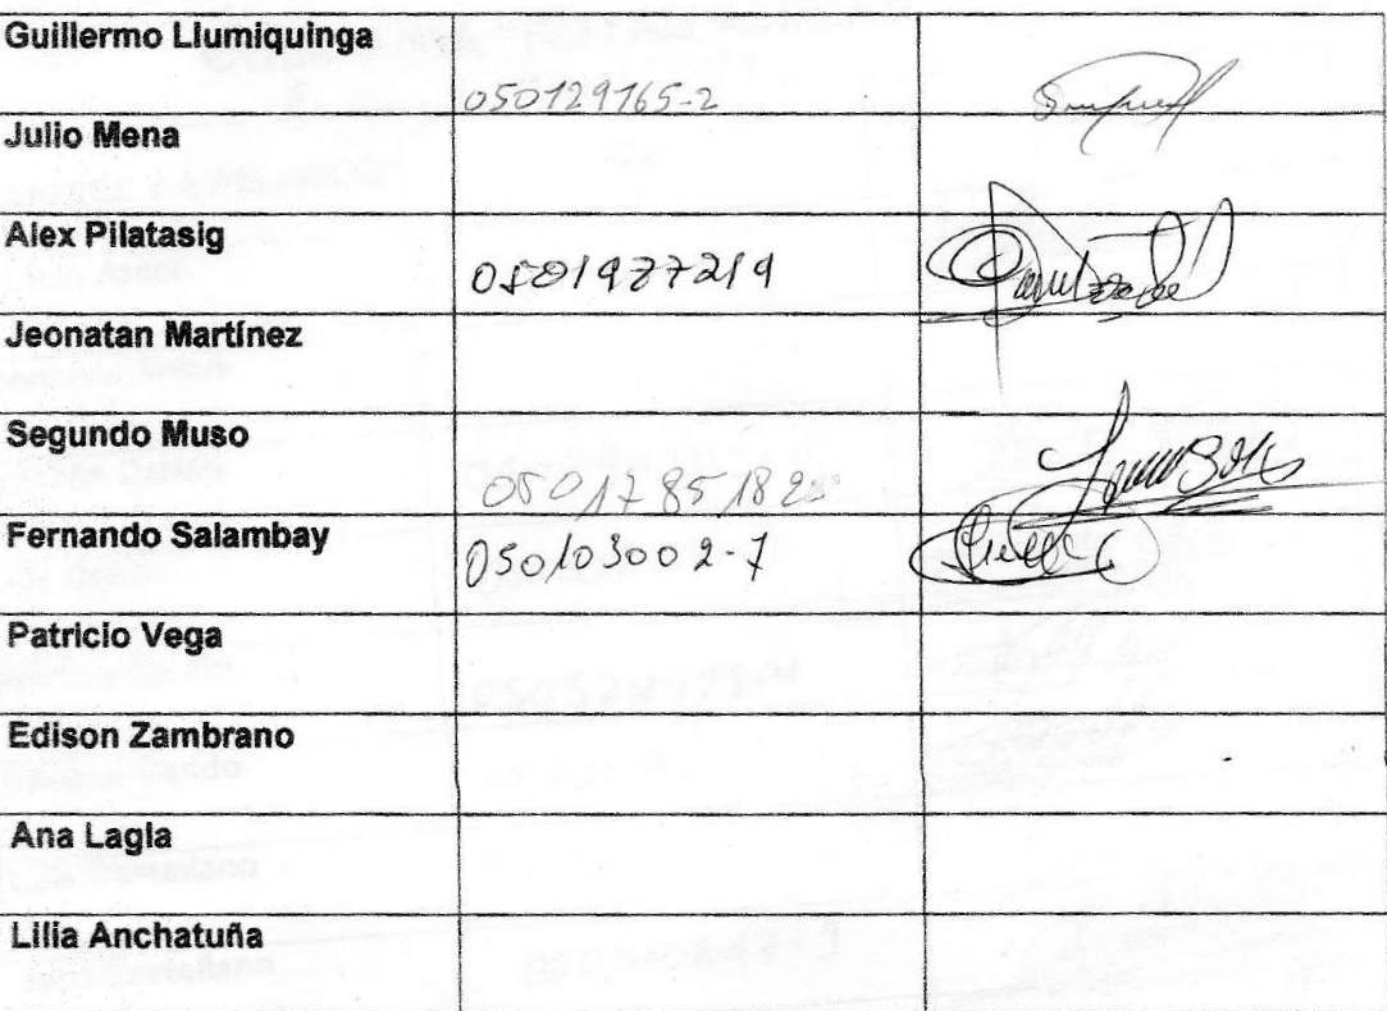 Guillermo Llumiquinga
050129165-2
Julio Mena
Alex Pilatasig
0501977219
Jeonatan Martínez
Segundo Muso
Fernando Salambay
050103002-7
Patricio Vega
Edison Zambrano
Ana Lagla
Lilia Anchatuña